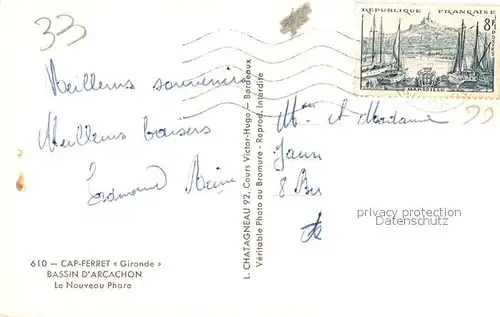 33
Meilleurs souvenirs
Meilleurs baisers
Edmond
610 — CAP-FERRET « Gironde »
BASSIN D'ARCACHON
Le Nouveau Phare
L. CHATAGNEAU 92, Cours Victor-Hugo — Bordeaux
Véritable Photo au Bromure - Reprod. Interdite
REPUBLIQUE FRANÇAISE
8F
POSTES
MARSEILLE
et Madame
8 Bis
privacy protection
Datenschutz